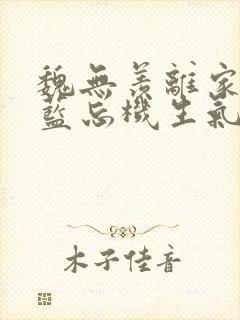 魏無羨離家
藍忘機生氣
木子佳音